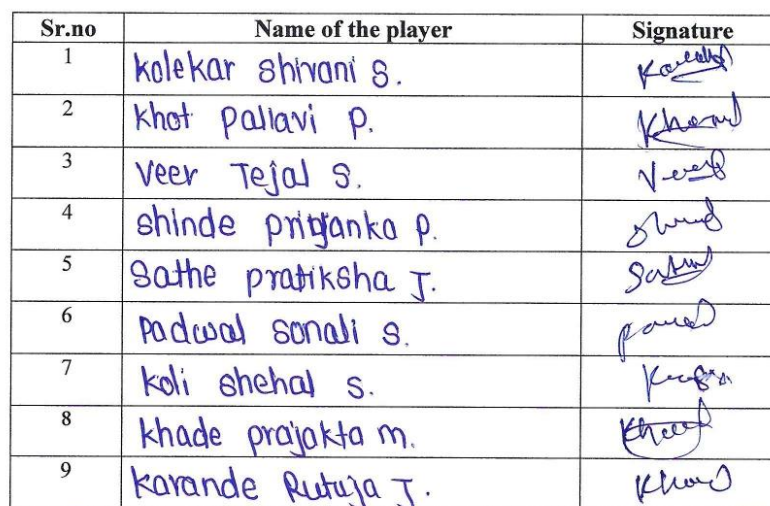 Sr.no Name of the player Signature
1 kolekar shivani S.
2 khot pallavi p.
3 veer Tejal S.
4 shinde priyanka p.
5 Sathe pratiksha J.
6 Padwal sonali s.
7 koli shehal s.
8 khade prajakta m.
9 karande Rutuja J.